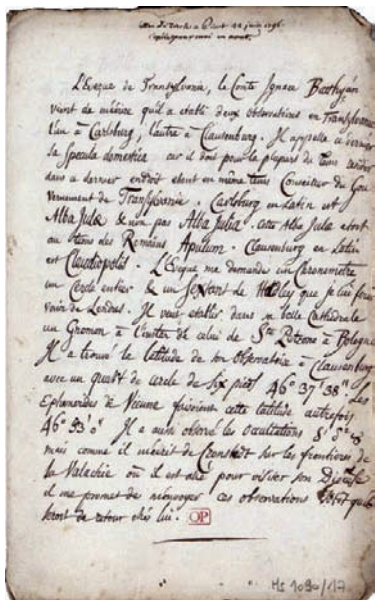 L'Eveque de Transylvanie, le Conte Ignace Batthyán
vient de m'écrire qu'il a etabli deux observatoires en Transylvanie
l'un à Carlsburg, l'autre à Clausenburg. Il appelle ce dernier
la Specula domestica car il doit pour la plupart du tems resider
dans ce dernier endroit etant en même tems Conseiller du Gou
vernement de Transylvanie. Carlsburg en Latin est
Alba Julæ & non pas Alba Julia. cette Alba Julæ etoit
au tems des Romains Apulum. Clausenburg en Latin
est Claudiopolis. L'Eveque me demande un Chronometre
un Cercle entier & un Sextant de Hadley que je lui ferai
venir de Londres. Il veut etablir dans sa belle Cathedrale
un Gnomon à l'imiter de celui de Ste Petrone à Bologne
Il a trouvé la latitude de son Observatoire à Clausenburg
avec un quart de cercle de six pieds 46° 37' 38". Les
Ephemerides de Vienne faisoient cette latitude autrefois
46° 33' 0" Il a aussi observé les occultations
mais comme il m'écrit de Cronstadt sur les frontieres de
la Valachie où il est allé pour visiter son Diocèse
il me promet de m'envoyer ces observations qu'il
sera de retour chés lui. OP
Ms 1090/17